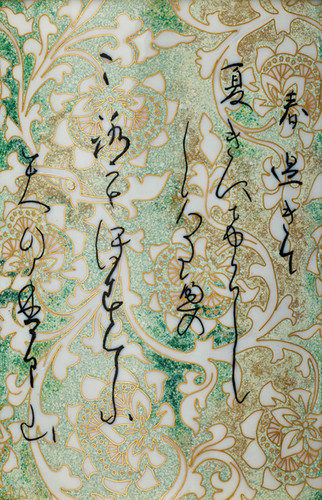 春過きて
夏きにけらし
しろたへの
ころもほすてふ
天の香具山